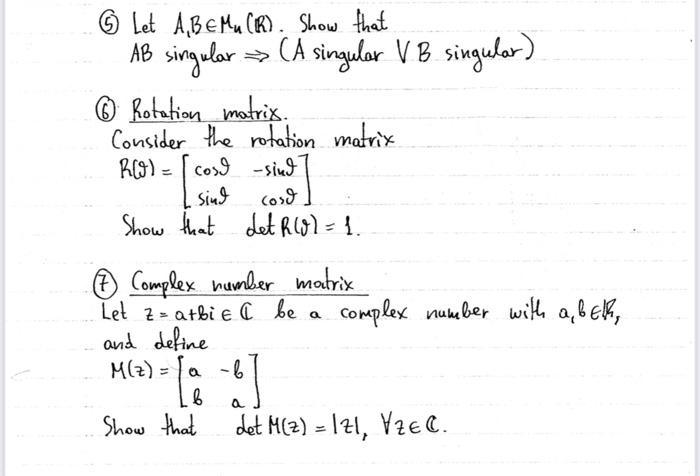 ⑤ Let A,B∈Mn(ℝ). Show that
AB singular ⇒ (A singular ∨ B singular)
⑥ Rotation matrix.
Consider the rotation matrix
R(ϑ) = [cosϑ -sinϑ
sinϑ cosϑ]
Show that det R(ϑ) = 1.
⑦ Complex number matrix
Let z = a+bi ∈ ℂ be a complex number with a,b∈ℝ,
and define
M(z) = [a -b
b a]
Show that det M(z) = |z|, ∀z∈ℂ.